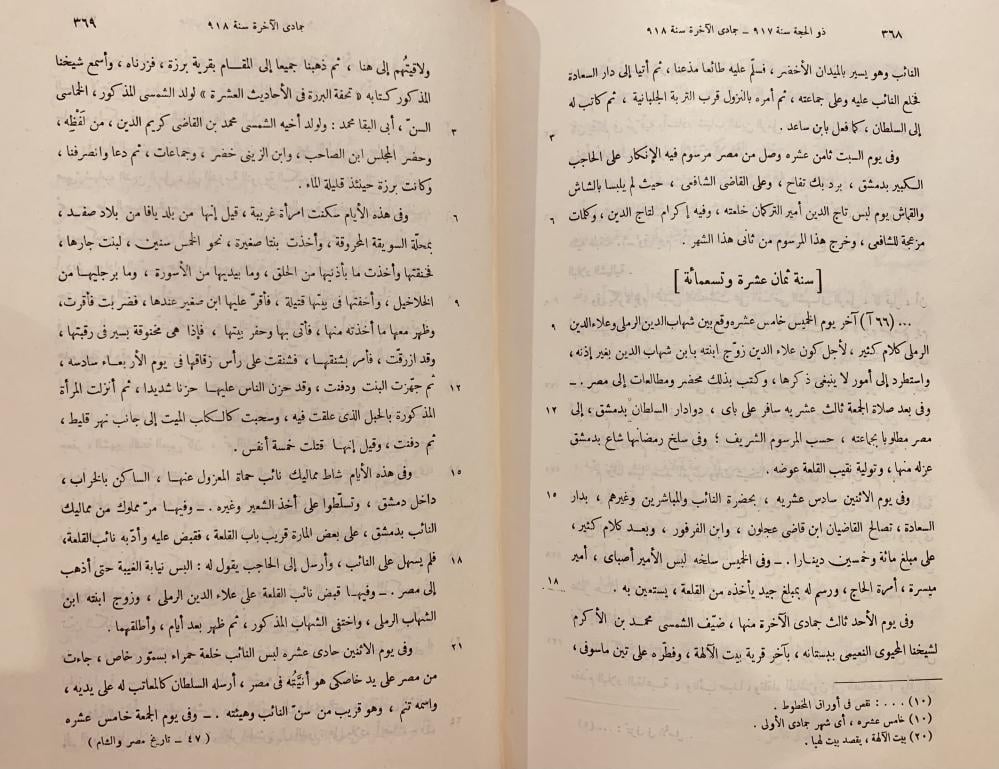 ٣٦٨
ذو الحجة سنة ٩١٧ ــ جمادى الآخرة سنة ٩١٨
النائب وهو يسير بالميدان الأخضر ، فسلّم عليه طائعا مذعنا ، ثم أتيا إلى دار السعادة
فخلع النائب عليه وعلى جماعته ، ثم أمره بالنزول قرب التربة الجلبانية ، ثم كاتب له
إلى السلطان ، كما فعل بابن ساعد . ٣
وفى يوم السبت ثامن عشره وصل من مصر مرسوم فيه الإنكار على الحاجب
الكبير بدمشق ، برد بك تفاح ، وعلى القاضى الشافعى ، حيث لم يلبسا بالشاش
والقماش يوم لبس تاج الدين أمير التركمان خلعته ، وفيه إكرام لتاج الدين ، وكلمات ٦
مزعجة للشافعى ، وخرج هذا المرسوم من ثانى هذا الشهر .
[ سنة ثمان عشرة وتسعمائة ]
... (٦٦ آ) آخر يوم الخميس خامس عشره وقع بين شهاب الدين الرملى وعلاء الدين ٩
الرملى كلام كثير ، لأجل كون علاء الدين زوّج ابنته بابن شهاب الدين بغير إذنه ،
واستطرد إلى أمور لا ينبغى ذكرها ، وكتب بذلك محضر ومطالعات إلى مصر . ــ
وفى بعد صلاة الجمعة ثالث عشريه سافر على باى ، دوادار السلطان بدمشق ، إلى ١٢
مصر مطلوبا بجماعته ، حسب المرسوم الشريف ؛ وفى سلخ رمضانها شاع بدمشق
عزله منها ، وتولية نقيب القلعة عوضه .
وفى يوم الاثنين سادس عشريه ، بحضرة النائب والمباشرين وغيرهم ، بدار ١٥
السعادة ، تصالح القاضيان ابن قاضى عجلون ، وابن الفرفور ، وبعد كلام كثير ،
على مبلغ مائة وخمسين دينارا . ــ وفى الخميس سلخه لبس الأمير أصباى ، أمير
ميسرة ، أمرة الحاج ، ورسم له بمبلغ جيد يأخذه من القلعة ، يستعين به . ١٨
وفى يوم الأحد ثالث جمادى الآخرة منها ، ضيّف الشمسى محمد بن الأكرم
لشيخنا المحيوى النعيمى ببستانه ، بآخر قرية بيت الآلهة ، وفطّره على تين ماسوفى ،
(١٠) . . . : نقص فى أوراق المخطوط .
(١٠) خامس عشره ، أى شهر جمادى الأولى .
(٢٠) بيت الآلهة ، يقصد بيت لهيا .
جمادى الآخرة سنة ٩١٨
٣٦٩
ولاقيتُهم إلى هنا ، ثم ذهبنا جميعا إلى المقام بقرية برزة ، فزرناه ، وأسمع شيخنا
المذكور كتابه « تحفة البررة فى الأحاديث العشرة » لولد الشمسى المذكور ، الخماسى
السنّ ، أبى البقا محمد : ولولد أخيه الشمسى محمد بن القاضى كريم الدين ، من لَفْظه ، ٣
وحضر المجلس ابن الصاحب ، وابن الزينى خضر ، وجماعات ، ثم دعا وانصرفنا ،
وكانت برزة حينئذ قليلة الماء .
وفى هذه الأيام سكنت امرأة غريبة ، قيل إنها من بلد يافا من بلاد صفد ، ٦
بمحلّة السويقة المحروقة ، وأخذت بنتا صغيرة ، نحو الخمس سنين ، لبنت جارها ،
فخنقتها وأخذت ما بأذنيها من الحلق ، وما بيديها من الأسورة ، وما برجليها من
الخلاخيل ، وأخفتها فى بيتها قتيلة ، فأقرّ عليها ابن صغير عندها ، فضربت فأقرت ، ٩
وظهر معها ما أخذته منها ، فأتى بها وحفر بيتها ، فإذا هى مخنوقة بسير فى رقبتها ،
وقد ازرقّت ، فأمر بشنقها ، فشنقت على رأس زقاقها فى يوم الأربعاء سادسه ،
ثم جهّزت البنت ودفنت ، وقد حزن الناس عليها حزنا شديدا ، ثم أنزلت المرأة ١٢
المذكورة بالحبل الذى علقت فيه ، وسحبت كالكلاب الميت إلى جانب نهر قليط ،
ثم دفنت ، وقيل إنها قتلت خمسة أنفس .
وفى هذه الأيام شاط مماليك نائب حماة المعزول عنها ، الساكن بالخراب ، ١٥
داخل دمشق ، وتسلّطوا على أخذ الشعير وغيره . ــ وفيها مرّ مملوك من مماليك
النائب بدمشق ، على بعض المارة قريب باب القلعة ، فقبض عليه وأدّبه نائب القلعة ،
فلم يسهل على النائب ، وأرسل إلى الحاجب يقول له : البس نيابة الغيبة حتى أذهب ١٨
إلى مصر . ــ وفيها قبض نائب القلعة على علاء الدين الرملى ، وزوج ابنته ابن
الشهاب الرملى ، واختفى الشهاب المذكور ، ثم ظهر بعد أيام ، وأطلقهما .
وفى يوم الاثنين حادى عشره لبس النائب خلعة حمراء بسمّور خاص ، جاءت ٢١
من مصر على يد خاصكى هو أنيَّتُه فى مصر ، أرسله السلطان كالمعاتب له على يديه ،
واسمه تنم ، وهو قريب من سنّ النائب وهيئته . ــ وفى يوم الجمعة خامس عشره
( ٤٧ ــ تاريخ مصر والشام )